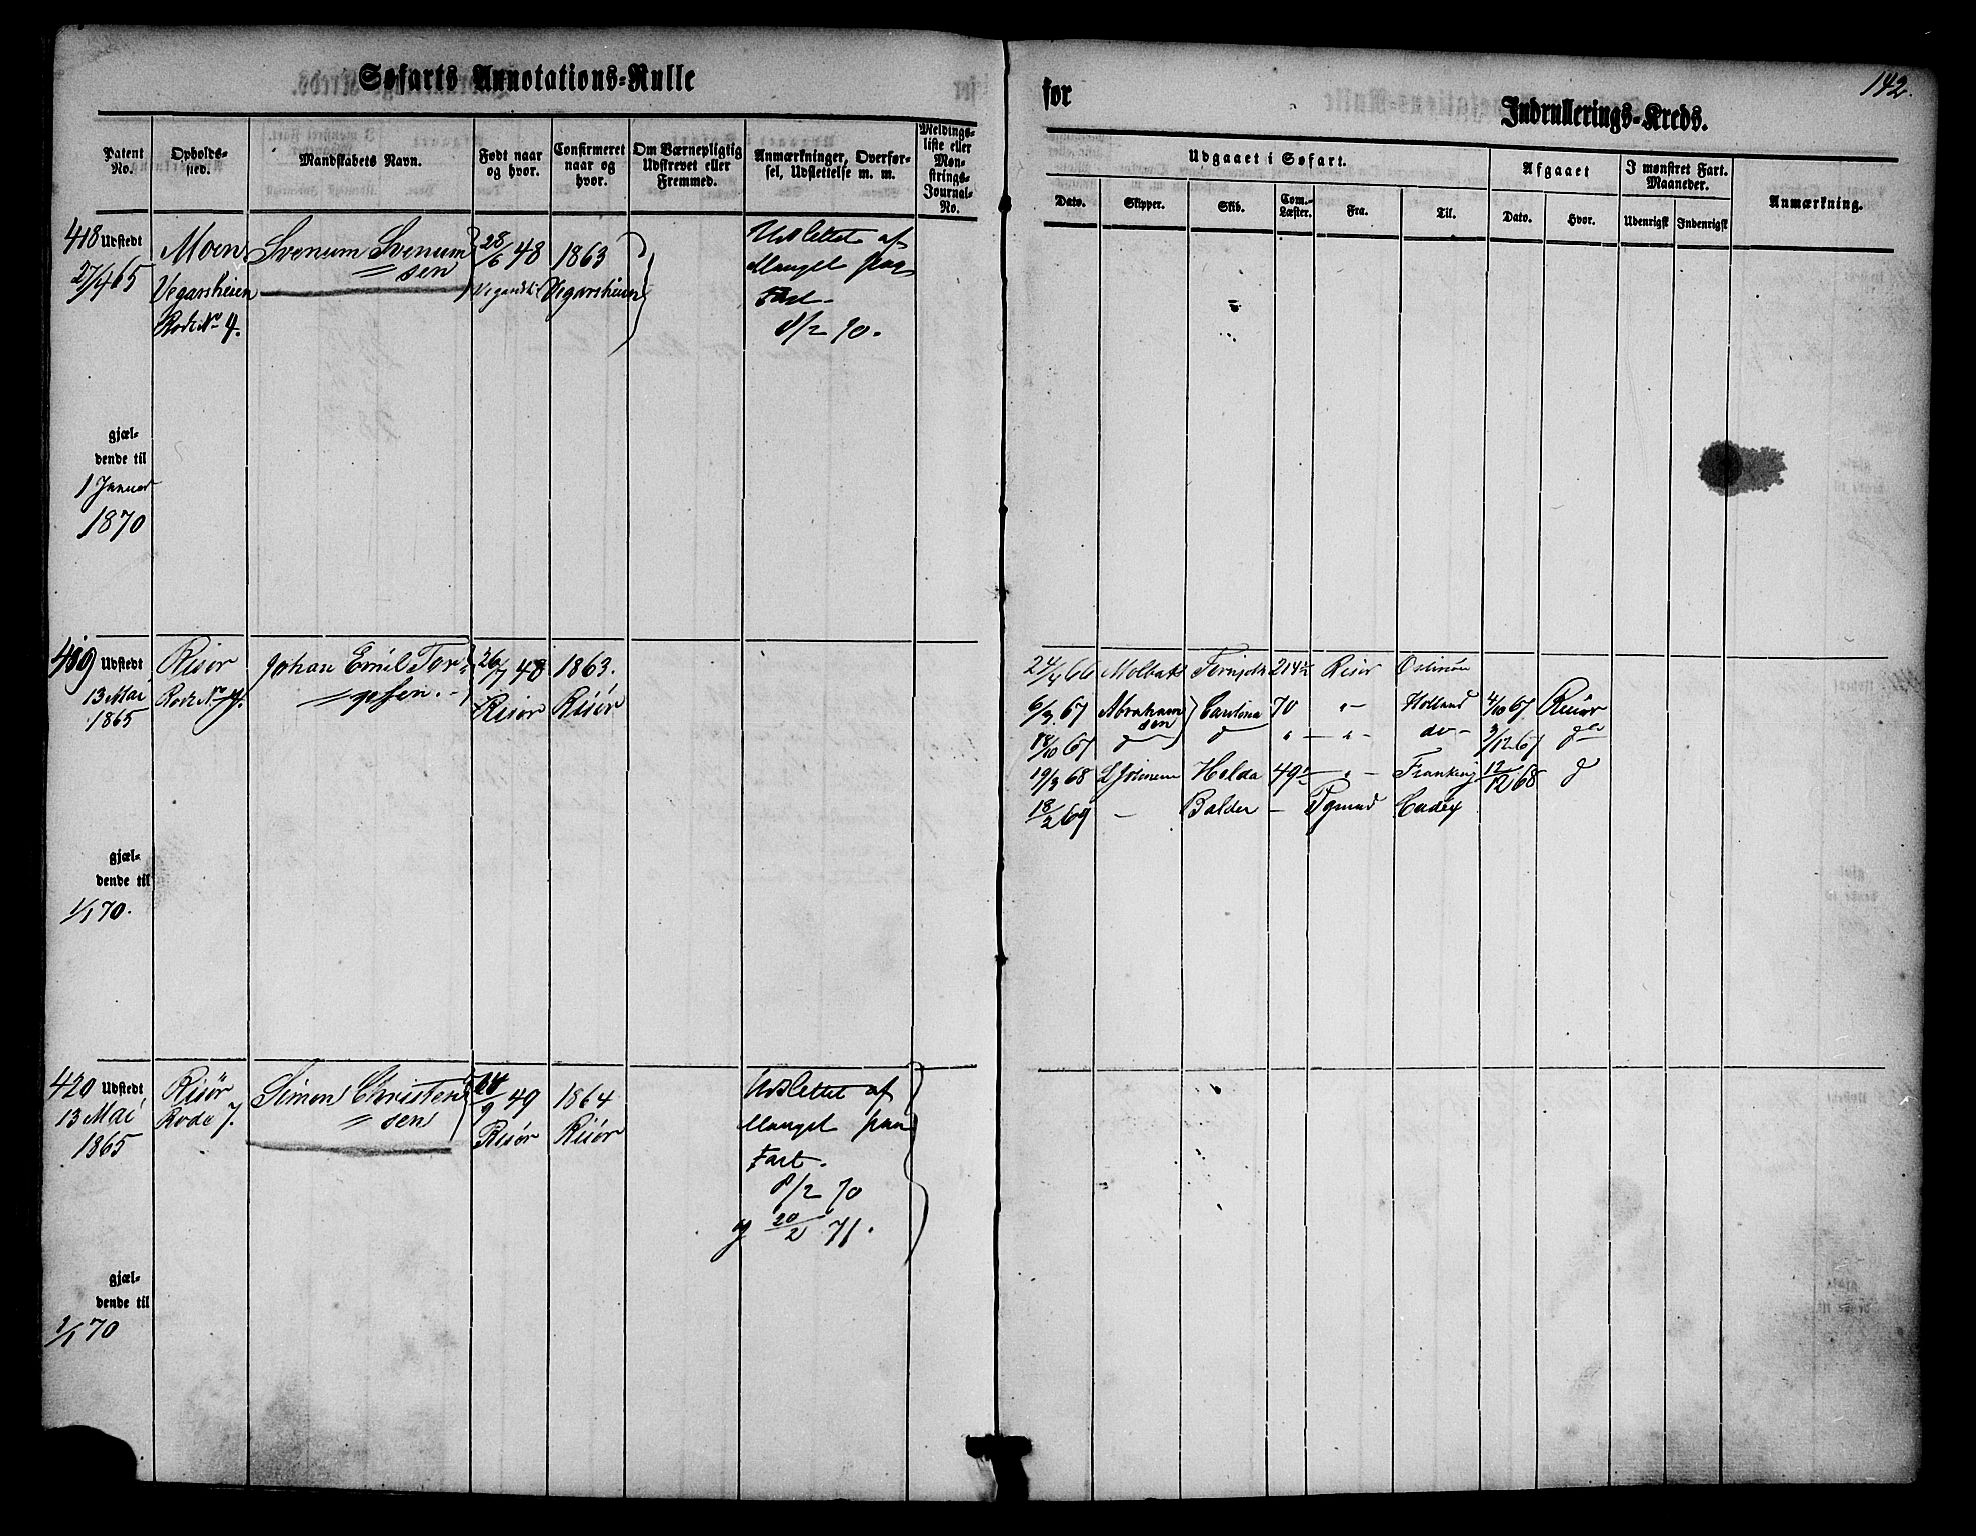 Søfarts Annotations-Rulle
for
Indrullerings-Kreds.
142.
Patent No.
Opholds-sted.
Mandskabets Navn.
Født naar og hvor.
Confirmeret naar og hvor.
Om Værnepligtig Udskrevet eller Fremmed.
Anmærkninger, Overfør-sel, Udslettelse m. m.
Meldings-liste eller Møn-strings-Journal-No.
Udgaaet i Søfart.
Afgaaet
I mønstret Fart. Maaneder.
Anmærkning.
Dato.
Skipper.
Skib.
Com.-Læster.
Fra.
Til.
Dato.
Hvor.
Udenrigsk
Indenrigsk
418 Udstedt Moen Svenum Svenum 28/6 48 1863 Udslettet af
27/4 65 Vegarsheien sen Vegarsheien Mangel paa
Rode No 4. Fart
8/2 70.
gjæl-
dende til
1 Januar
1870
419 Udstedt Risør Johan Emil Tor 26/7 48 1863.
13 Mai Rode No 7. gesen. Risør Risør
1865
24/4 66 Molbak 214½ Risør Østersøn
6/3 67 Abraham sen Carolina 70 " Holland 4/10 67 Risør
18/10 67 " " do 3/12 67 do
19/3 68 Helda 49½ " Frankrig 12/12 68 d
18/2 69 - Balder - Cadix
gjæl-
dende til
1/1 70.
420 Udstedt Risør Simon Christen 24/9 49 1864 Udslettet af
13 Mai Rode 7. sen Risør Risør Mangel paa
1865 Fart.
8/2 70
og 20/2 71.
gjæl-
dende til
1/1 70